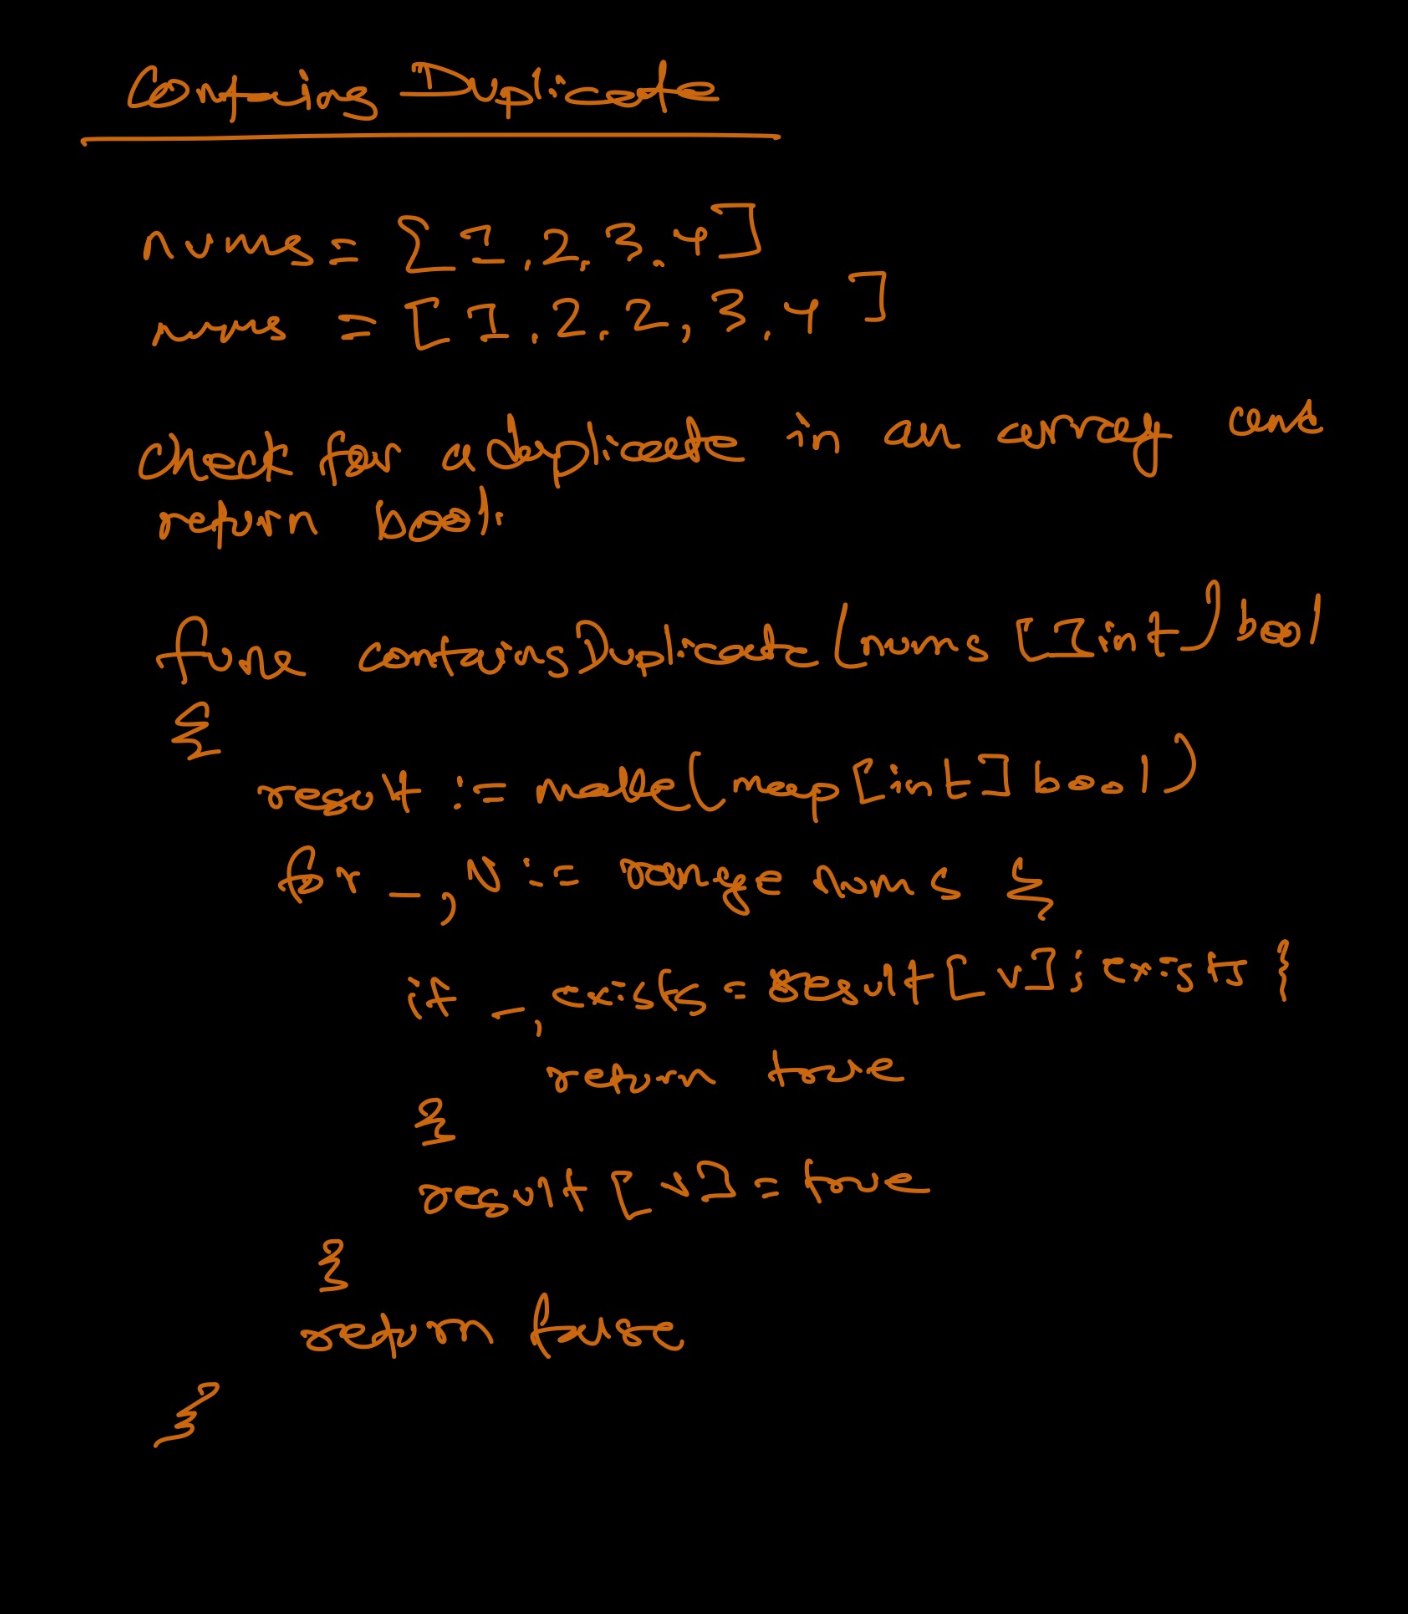 Contaings Duplicate
nums = [1,2,3,4]
nums = [1,2,2,3,4]
check for a duplicate in an array and
return bool.
func containsDuplicate(nums []int) bool
{
result := make(map[int]bool)
for _, v := range nums {
if _, exists = result[v]; exists {
return true
}
result[v] = true
}
return false
}